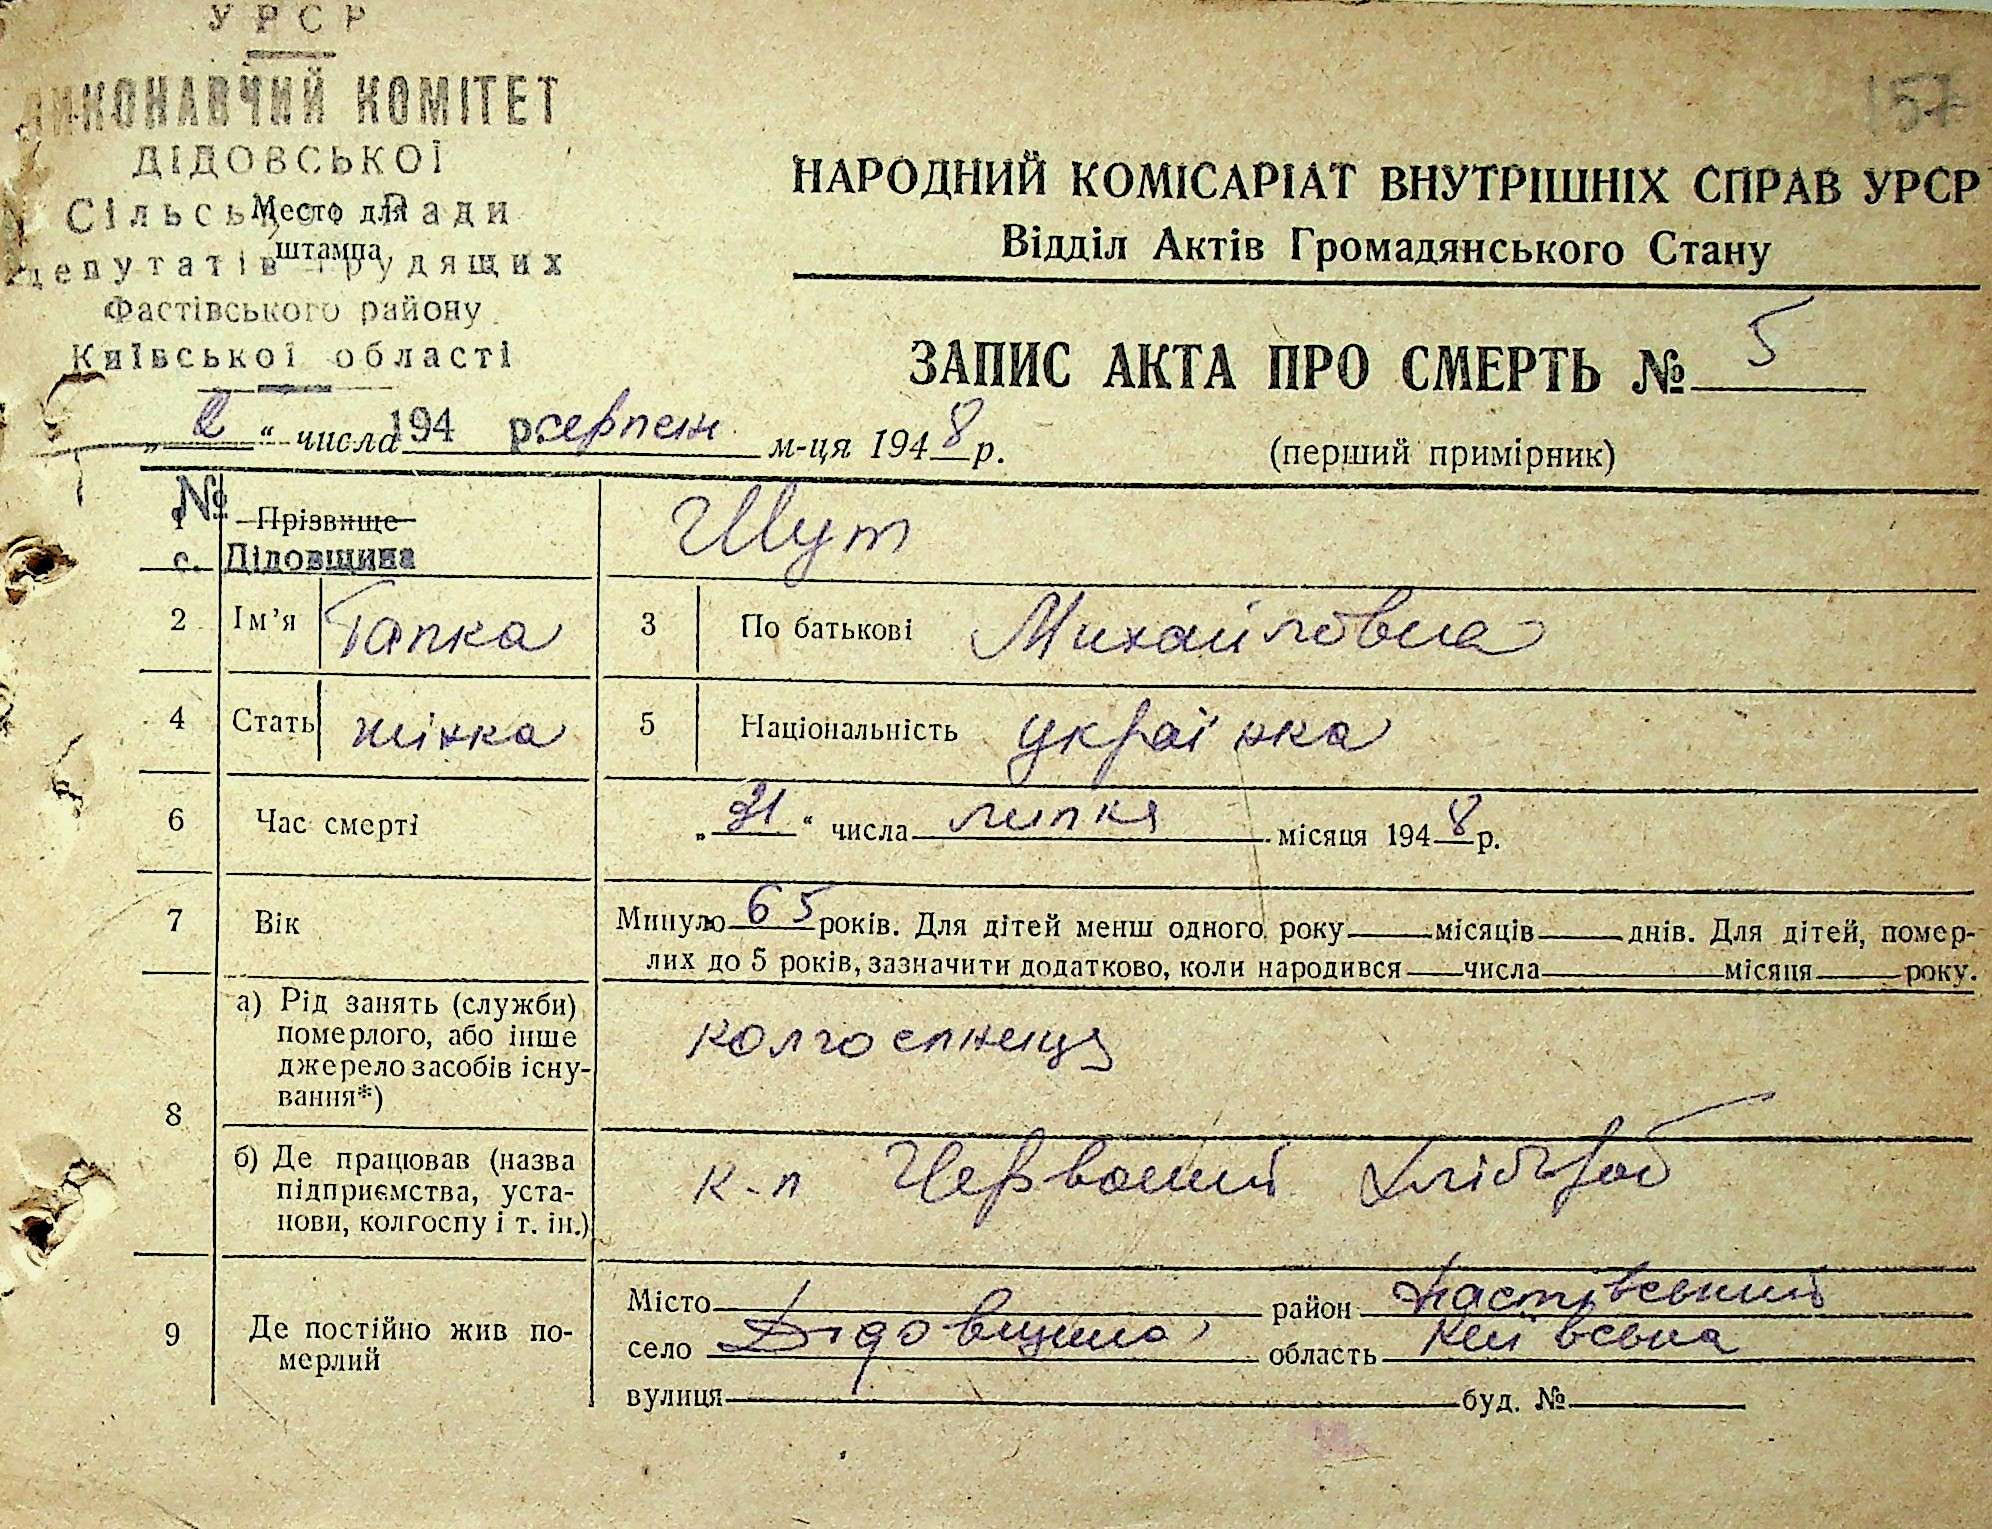 УРСР
ВИКОНАВЧИЙ КОМІТЕТ
ДІДОВСЬКОЇ
Сільської Ради
депутатів трудящих
Фастівського району
Київської області
Место для
штампа
157
НАРОДНИЙ КОМІСАРІАТ ВНУТРІШНІХ СПРАВ УРСР
Відділ Актів Громадянського Стану
ЗАПИС АКТА ПРО СМЕРТЬ № 5
(перший примірник)
„2“ числа серпен м-ця 1948 р.
194 р.
№
1 Прізвище Шут
с. Дідовщина
2 Ім’я Гапка 3 По батькові Михайловна
4 Стать жінка 5 Національність українка
6 Час смерті „31“ числа липня місяця 1948 р.
7 Вік Минуло 65 років. Для дітей менш одного року місяців днів. Для дітей, помер-
лих до 5 років, зазначити додатково, коли народився числа місяця року.
8 а) Рід занять (служби)
померлого, або інше
джерело засобів існу-
вання*)
колгоспниця
б) Де працював (назва
підприємства, уста-
нови, колгоспу і т. ін.)
к-п Червоний хлібороб
9 Де постійно жив по-
мерлий
Місто район Фастівський
село Дідовщина область Київська
вулиця буд. №